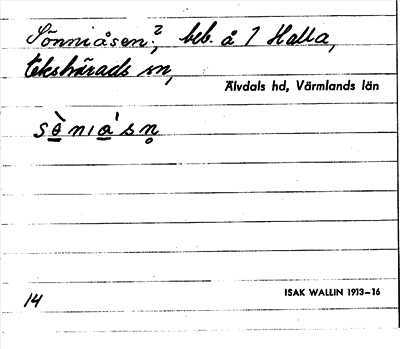 Sönniåsen?, beb. å 1 Halla,
Ekshärads sn,
Älvdals hd, Värmlands län
sö̀niåˊsn̥
14
ISAK WALLIN 1913–16